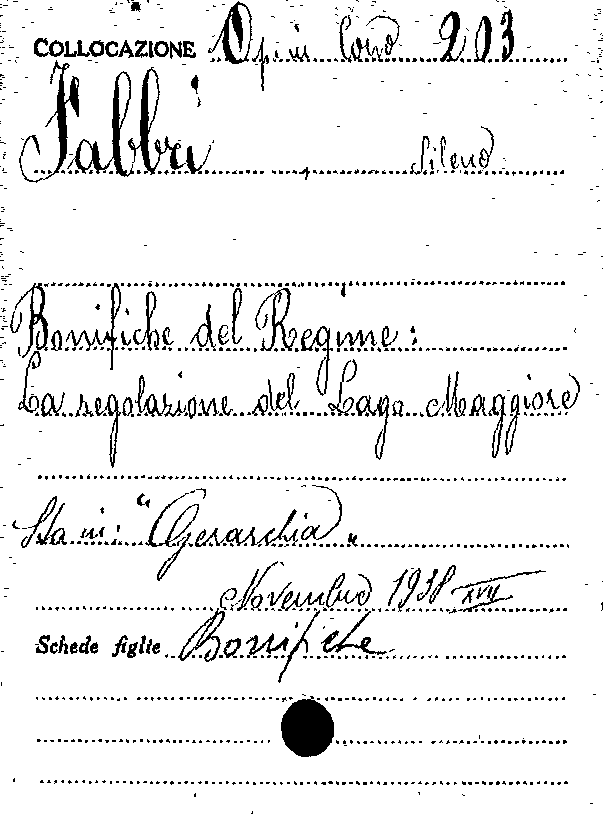 COLLOCAZIONE Opin Cons 203
Fabbri, Sileno
Bonifiche del Regime:
La regolazione del Lago Maggiore
Sta in: "Gerarchia"
Novembre 1938 XVII
Schede figlie Bonifiche